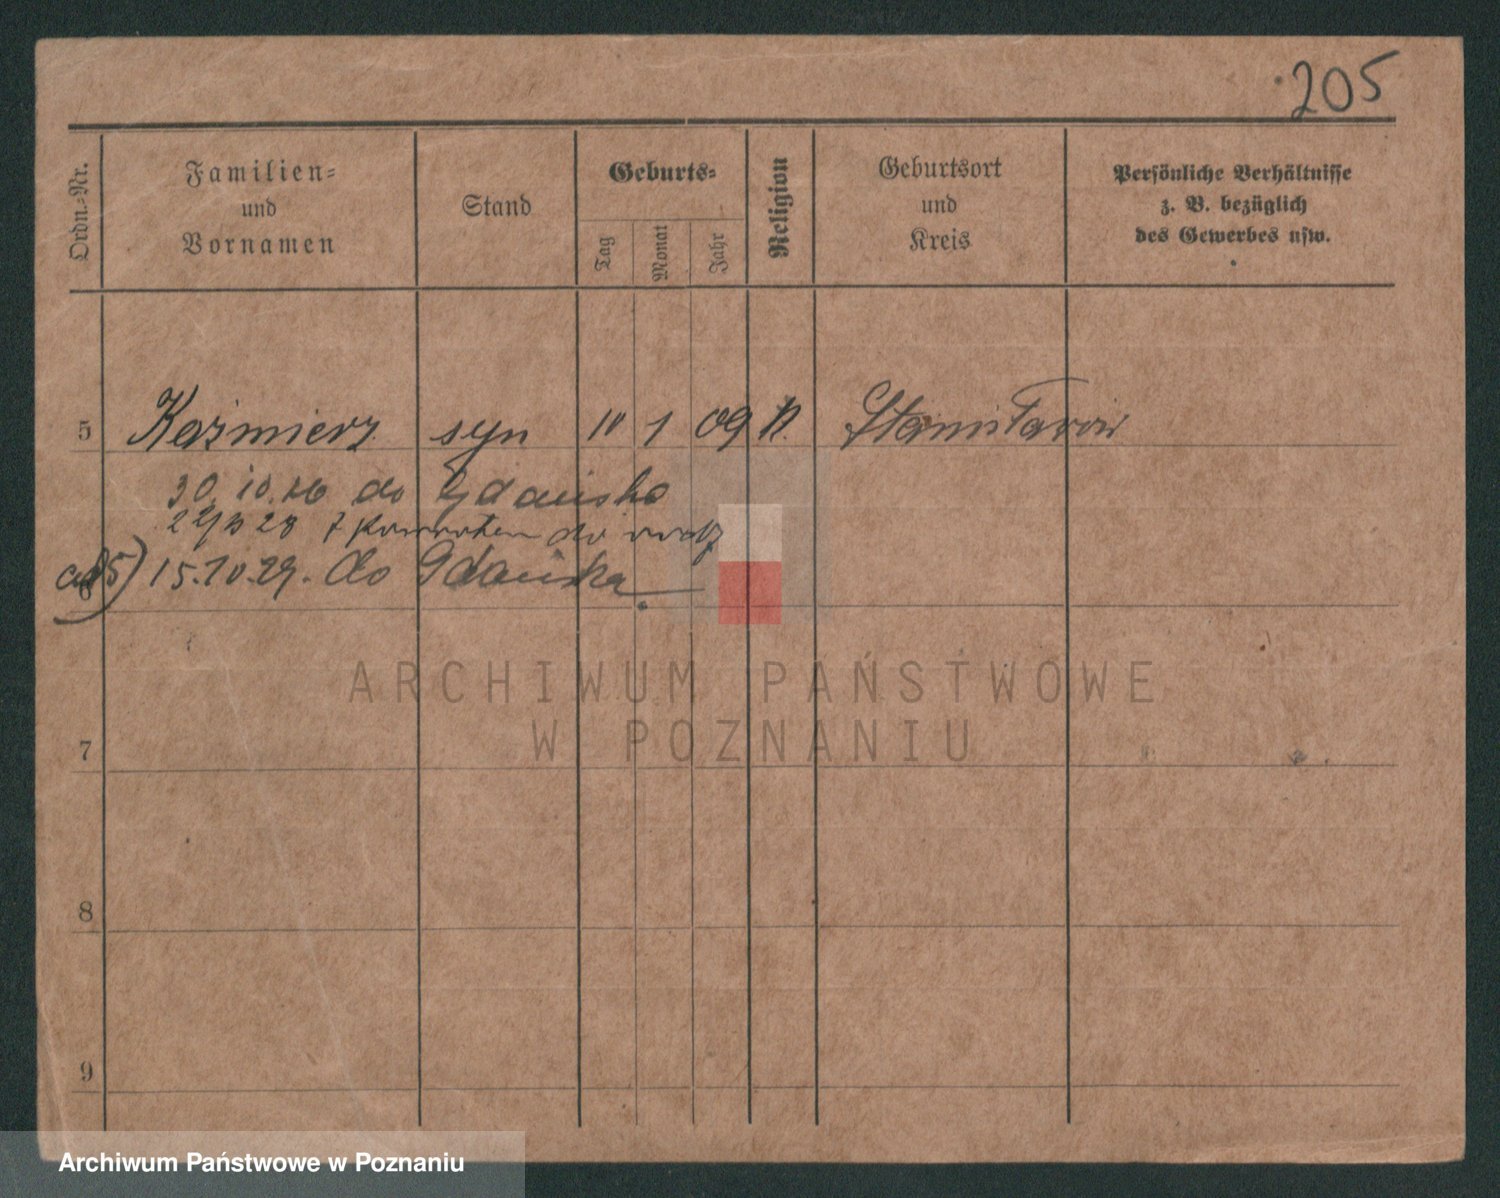 205
Ordn.-Nr.
Familien-
und
Vornamen
Stand
Geburts-
Tag
Monat
Jahr
Religion
Geburtsort
und
Kreis
Persönliche Verhältnisse
z. B. bezüglich
des Gewerbes usw.
5 Kaźmierz syn 10 1 09 K. Stanisławów
30.10.26 do Gdańska
28 z powrotem do
ad 5) 15.10.29. do Gdańska
6
ARCHIWUM PAŃSTWOWE
W POZNANIU
7
8
9
Archiwum Państwowe w Poznaniu